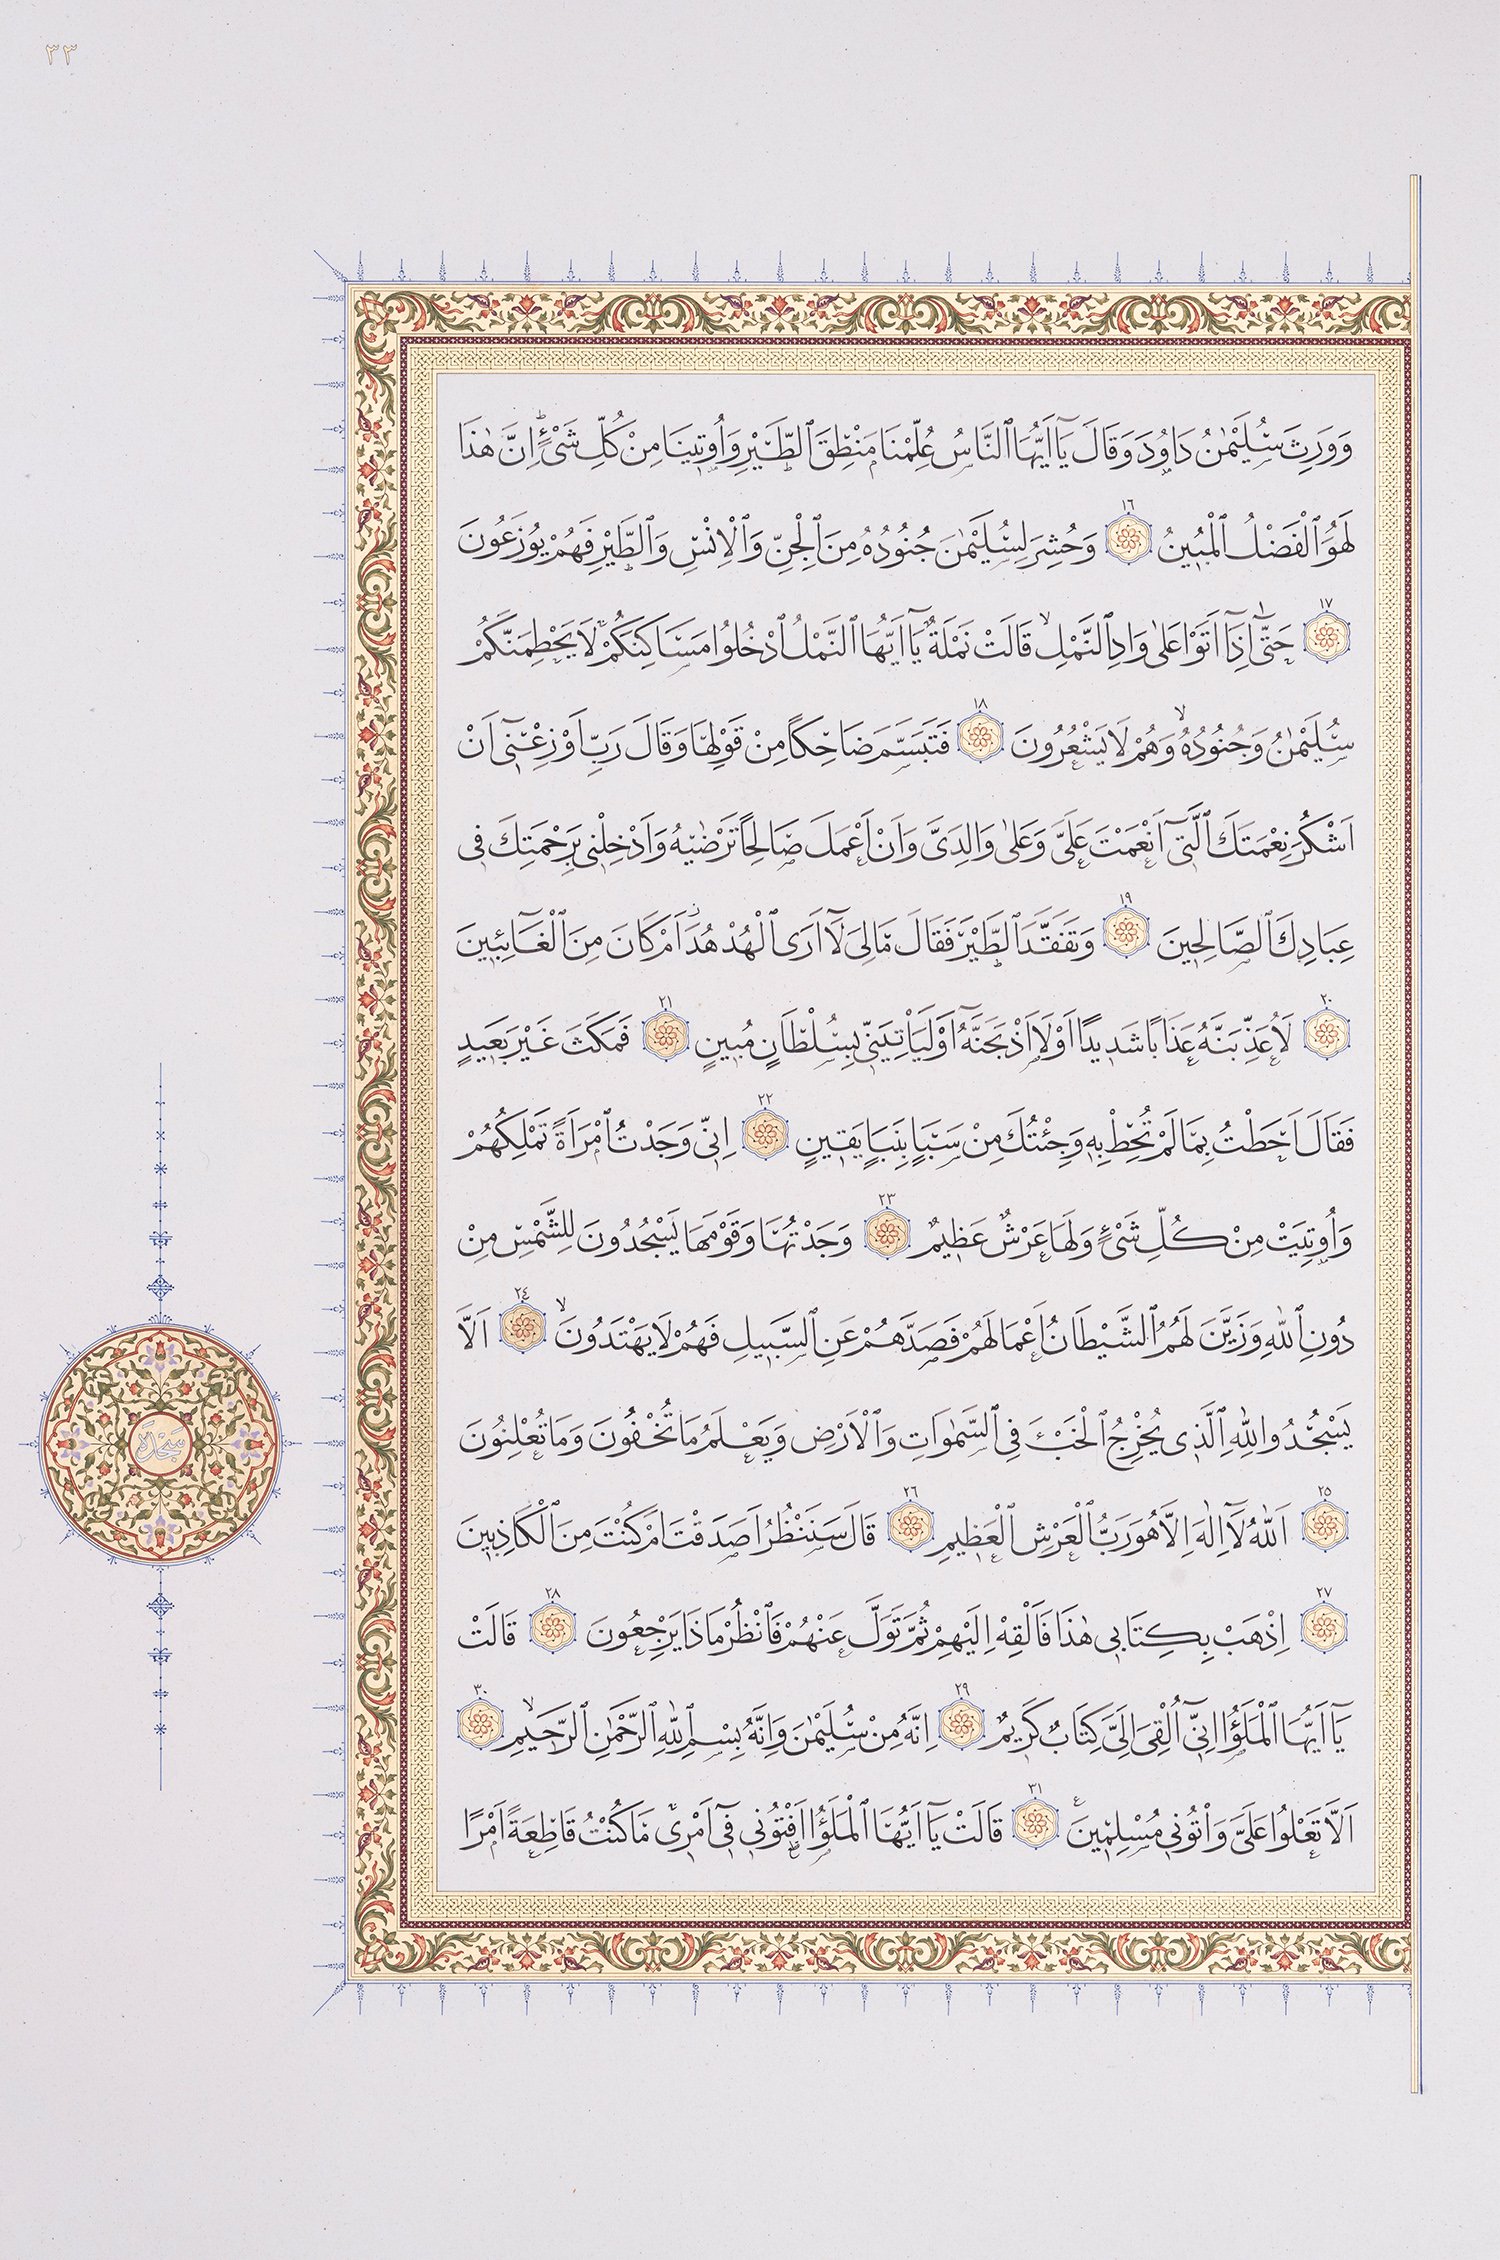 ٣٣
وَوَرِثَ سُلَيْمٰنُ دَاوُدَ وَقَالَ يَآ اَيُّهَا ٱلنَّاسُ عُلِّمْنَا مَنْطِقَ ٱلطَّيْرِ وَاُو۫تِينَا مِنْ كُلِّ شَيْءٍۜ اِنَّ هٰذَا
لَهُوَ ٱلْفَضْلُ ٱلْمُبِينُ ١٦ وَحُشِرَ لِسُلَيْمٰنَ جُنُودُهُ مِنَ ٱلْجِنِّ وَٱلْاِنْسِ وَٱلطَّيْرِ فَهُمْ يُوزَعُونَ
١٧ حَتّٰىٓ اِذَآ اَتَوْا عَلٰى وَادِ ٱلنَّمْلِۙ قَالَتْ نَمْلَةٌ يَآ اَيُّهَا ٱلنَّمْلُ ٱدْخُلُوا مَسَاكِنَكُمْۚ لَا يَحْطِمَنَّكُمْ
سُلَيْمٰنُ وَجُنُودُهُۙ وَهُمْ لَا يَشْعُرُونَ ١٨ فَتَبَسَّمَ ضَاحِكًا مِنْ قَوْلِهَا وَقَالَ رَبِّ اَوْزِعْن۪ىٓ اَنْ
اَشْكُرَ نِعْمَتَكَ ٱلَّت۪ىٓ اَنْعَمْتَ عَلَىَّ وَعَلٰى وَالِدَىَّ وَاَنْ اَعْمَلَ صَالِحًا تَرْضٰيهُ وَاَدْخِلْن۪ى بِرَحْمَتِكَ ف۪ى
عِبَادِكَ ٱلصَّالِح۪ينَ ١٩ وَتَفَقَّدَ ٱلطَّيْرَ فَقَالَ مَا لِىَ لَآ اَرَى ٱلْهُدْهُدَۘ اَمْ كَانَ مِنَ ٱلْغَآئِب۪ينَ
٢٠ لَاُعَذِّبَنَّهُ عَذَابًا شَد۪يدًا اَوْ لَاَا۬ذْبَحَنَّهُٓ اَوْ لَيَأْتِيَنّ۪ى بِسُلْطَانٍ مُب۪ينٍ ٢١ فَمَكَثَ غَيْرَ بَع۪يدٍ
فَقَالَ اَحَطْتُ بِمَا لَمْ تُحِطْ بِه۪ وَجِئْتُكَ مِنْ سَبَاٍ بِنَبَاٍ يَق۪ينٍ ٢٢ اِنّ۪ى وَجَدْتُ ٱمْرَاَةً تَمْلِكُهُمْ
وَاُو۫تِيَتْ مِنْ كُلِّ شَيْءٍ وَلَهَا عَرْشٌ عَظ۪يمٌ ٢٣ وَجَدْتُهَا وَقَوْمَهَا يَسْجُدُونَ لِلشَّمْسِ مِنْ
دُونِ ٱللّٰهِ وَزَيَّنَ لَهُمُ ٱلشَّيْطَانُ اَعْمَالَهُمْ فَصَدَّهُمْ عَنِ ٱلسَّب۪يلِ فَهُمْ لَا يَهْتَدُونَۙ ٢٤ اَلَّا
يَسْجُدُوا لِلّٰهِ ٱلَّذ۪ى يُخْرِجُ ٱلْخَبْءَ فِى ٱلسَّمٰوَاتِ وَٱلْاَرْضِ وَيَعْلَمُ مَا تُخْفُونَ وَمَا تُعْلِنُونَ
٢٥ اَللّٰهُ لَآ اِلٰهَ اِلَّا هُوَ رَبُّ ٱلْعَرْشِ ٱلْعَظ۪يمِ ٢٦ قَالَ سَنَنْظُرُ اَصَدَقْتَ اَمْ كُنْتَ مِنَ ٱلْكَاذِب۪ينَ
٢٧ اِذْهَبْ بِكِتَاب۪ى هٰذَا فَاَلْقِهْ اِلَيْهِمْ ثُمَّ تَوَلَّ عَنْهُمْ فَٱنْظُرْ مَاذَا يَرْجِعُونَ ٢٨ قَالَتْ
يَآ اَيُّهَا ٱلْمَلَؤُا اِنّ۪ىٓ اُلْقِىَ اِلَىَّ كِتَابٌ كَر۪يمٌ ٢٩ اِنَّهُ مِنْ سُلَيْمٰنَ وَاِنَّهُ بِسْمِ ٱللّٰهِ ٱلرَّحْمٰنِ ٱلرَّح۪يمِۙ ٣٠
اَلَّا تَعْلُوا عَلَىَّ وَأْتُون۪ى مُسْلِم۪ينَ ٣١ قَالَتْ يَآ اَيُّهَا ٱلْمَلَؤُا اَفْتُون۪ى ف۪ىٓ اَمْر۪ىۚ مَا كُنْتُ قَاطِعَةً اَمْرًا
سَجْدَة